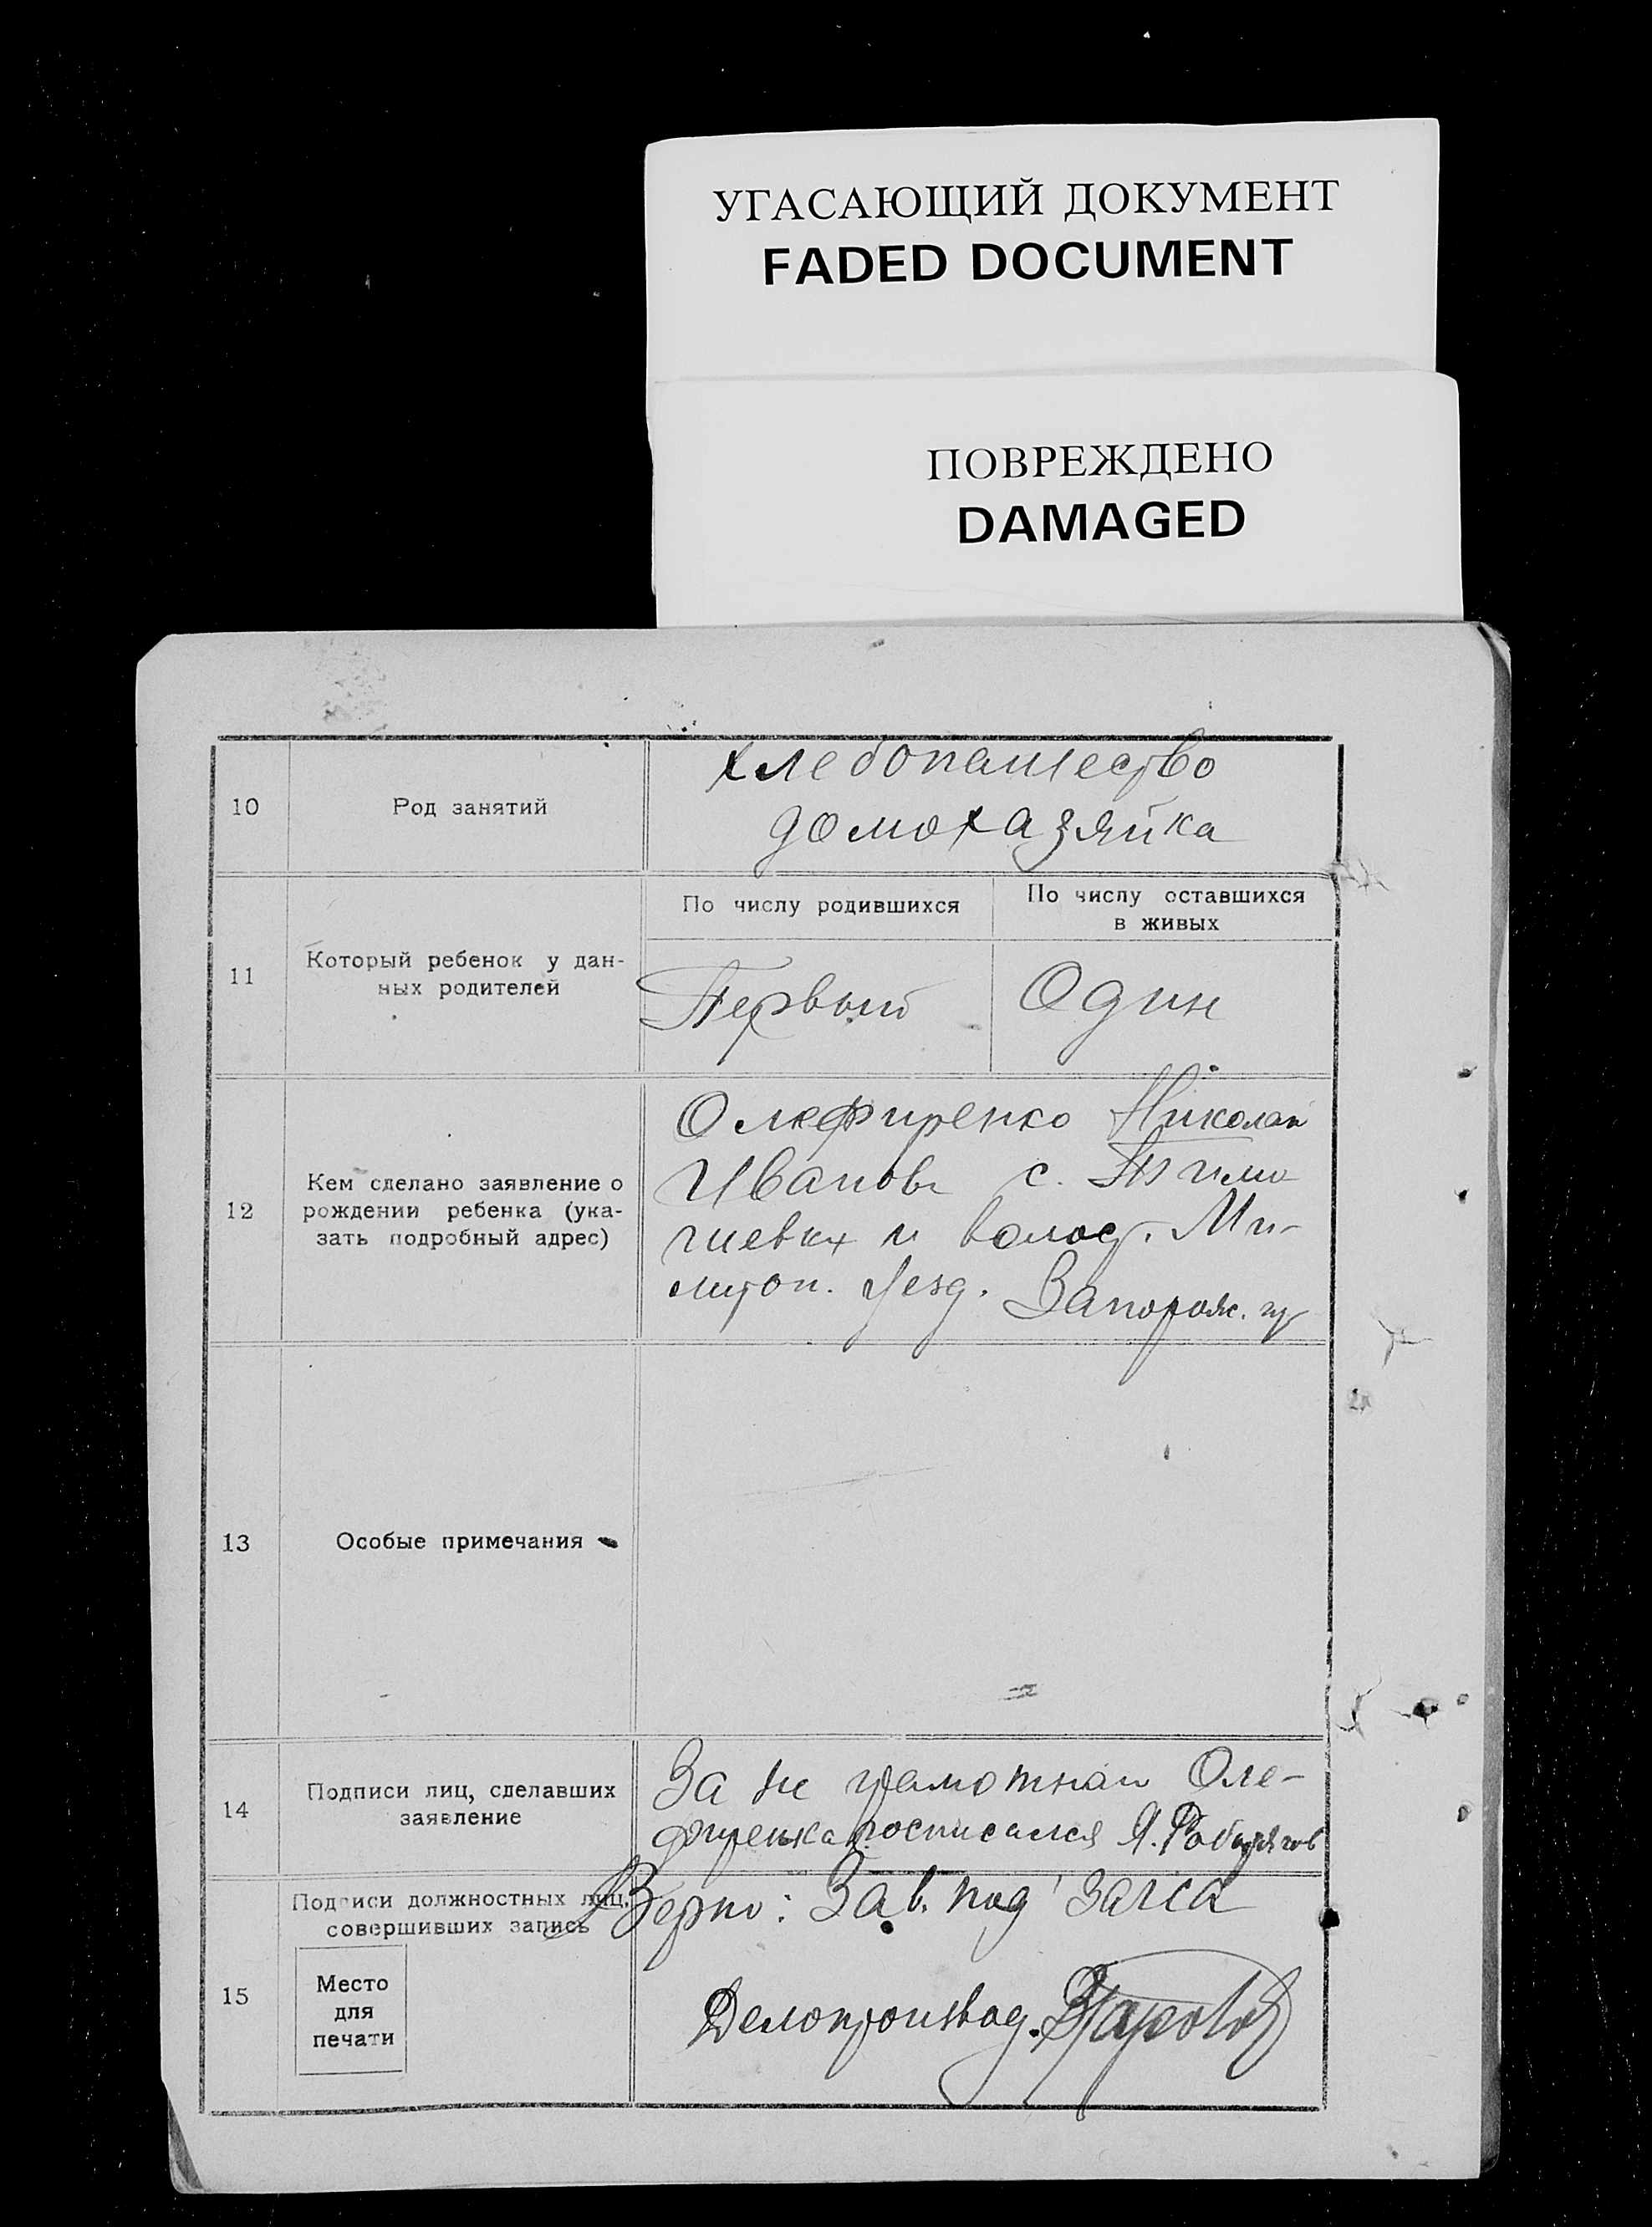 УГАСАЮЩИЙ ДОКУМЕНТ
FADED DOCUMENT
ПОВРЕЖДЕНО
DAMAGED
10
Род занятий
хлебопашество
домохазяйка
11
Который ребенок у дан-
ных родителей
По числу родившихся
Первый
По числу оставшихся
в живых
Один
12
Кем сделано заявление о
рождении ребенка (ука-
зать подробный адрес)
Олефиренко Николай
Иванов с.
и волост. Ми-
литоп. уезд. Запорож. гу
13
Особые примечания
14
Подписи лиц, сделавших
заявление
За не грамотнаи Оле-
фиренка росписался Я.
15
Подписи должностных лиц,
совершивших запись
Место
для
печати
Верно: Зав. под Загса
Делопроизвод.